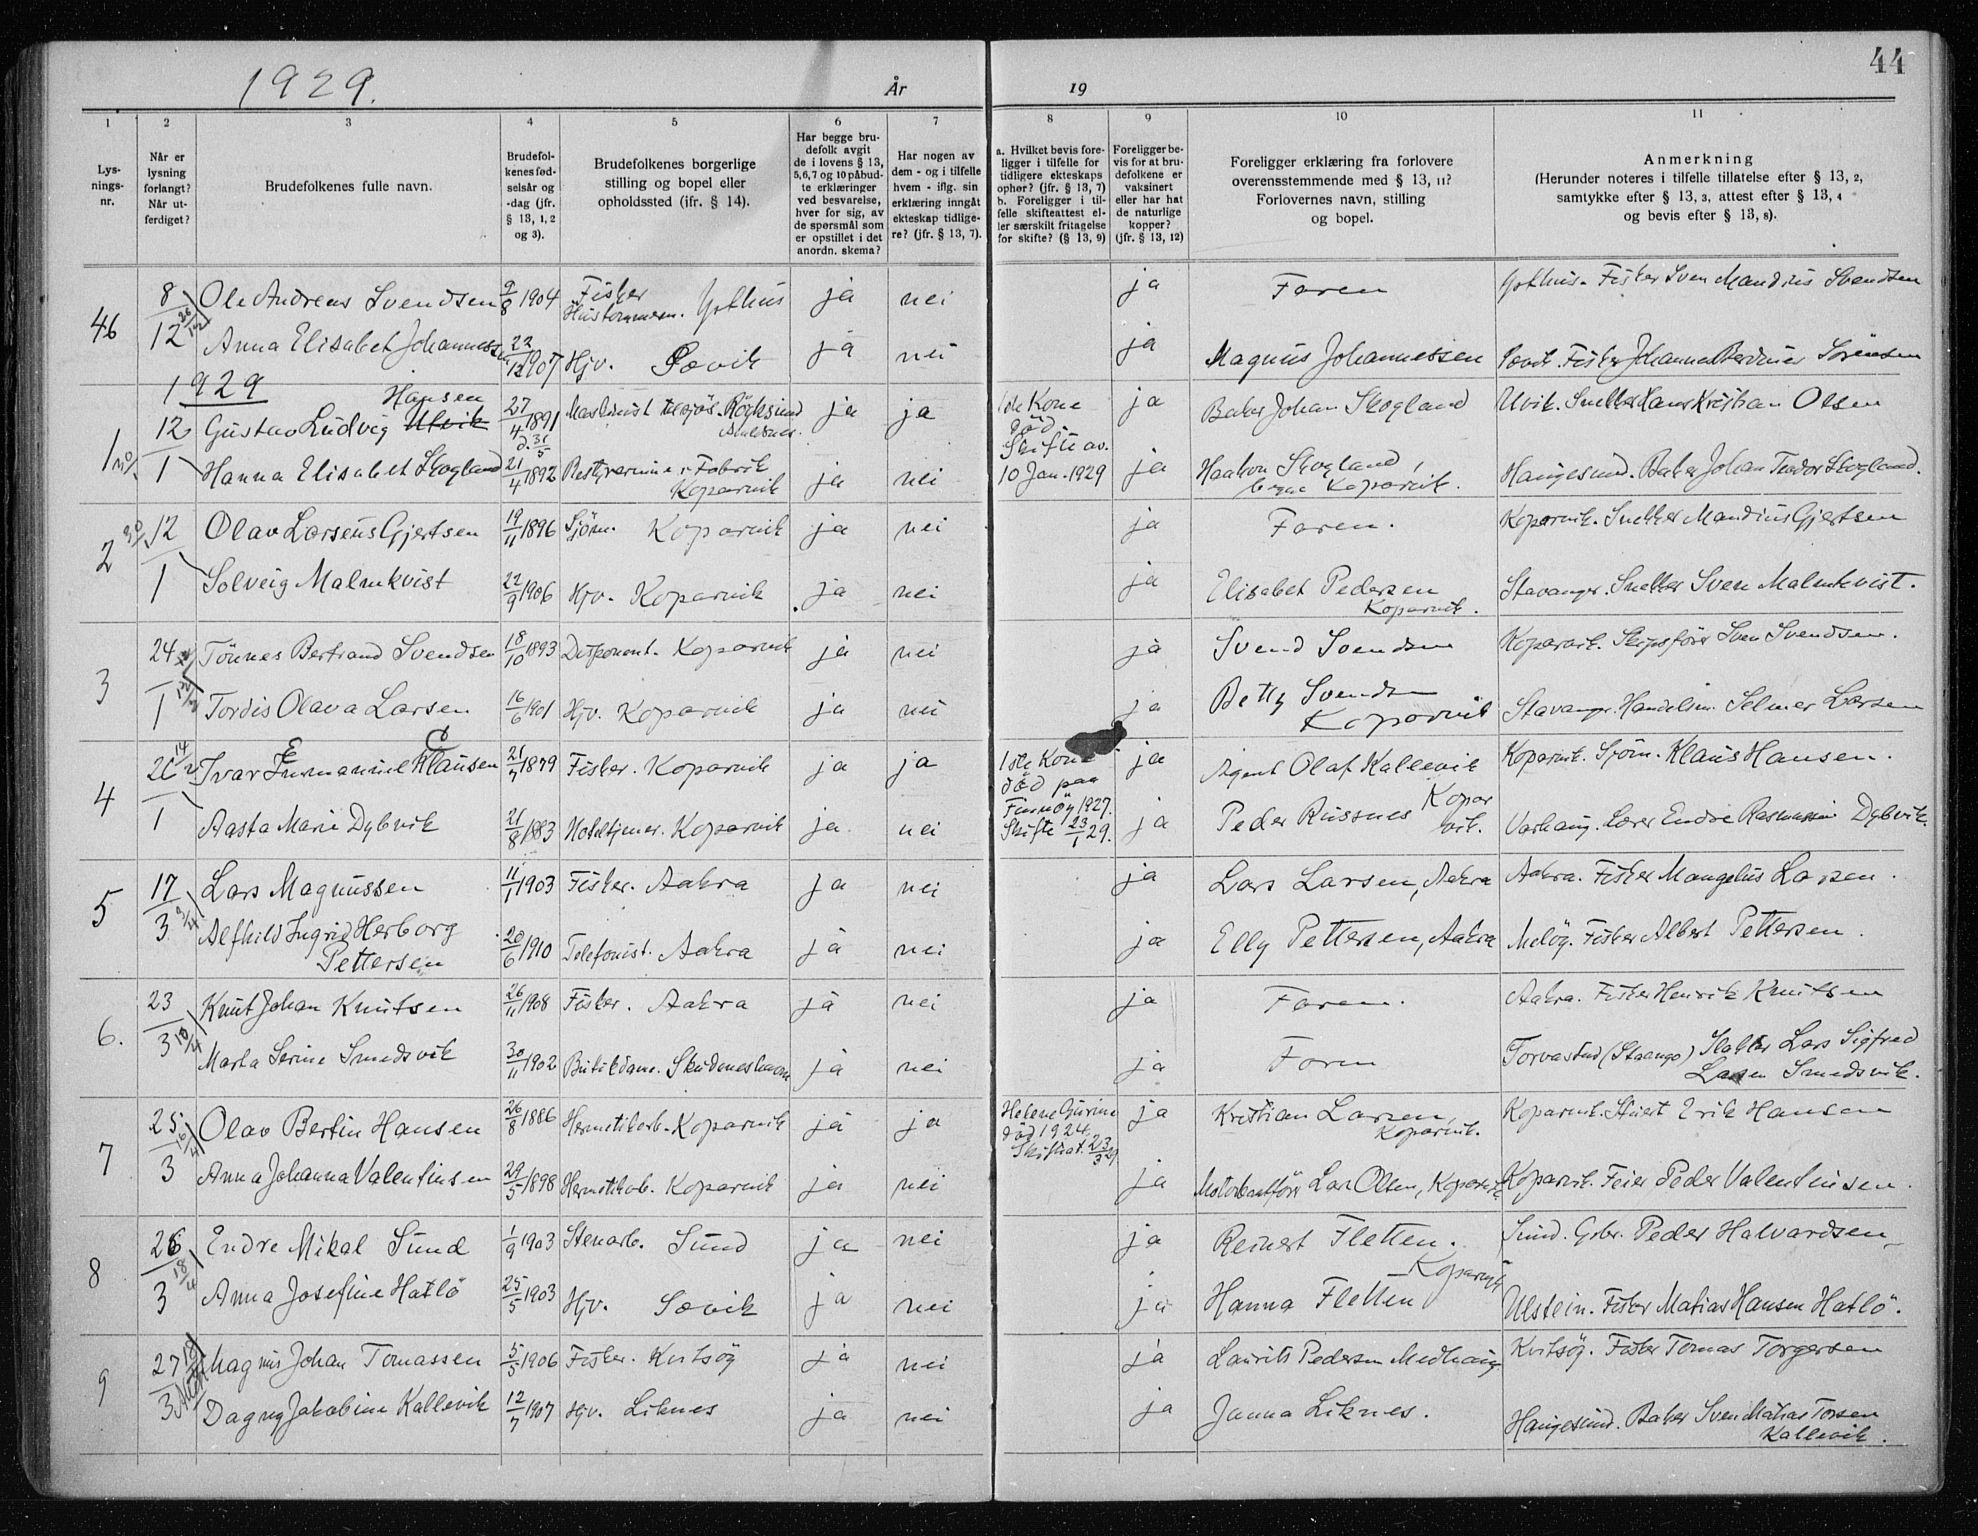 1929.
År
19
44
1 2 3 4 5 6 7 8 9 10 11
Lys-
nings-
nr.
Når er
lysning
forlangt?
Når ut-
ferdiget?
Brudefolkenes fulle navn.
Brudefol-
kenes fød-
selsår og
-dag (jfr.
§ 13, 1, 2
og 3).
Brudefolkenes borgerlige
stilling og bopel eller
opholdssted (ifr. § 14).
Har begge bru-
defolk avgit
de i lovens § 13,
5,6,7 og 10 påbud-
te erklæringer
ved besvarelse,
hver for sig, av
de spørsmål som
er opstillet i det
anordn. skema?
Har nogen av
dem - og i tilfelle
hvem - iflg. sin
erklæring inngått
ekteskap tidlige-
re? (jfr. § 13, 7).
a. Hvilket bevis fore-
ligger i tilfelle for
tidligere ekteskaps
ophør? (jfr. § 13, 7)
b. Foreligger i til-
felle skifteattest el-
ler særskilt fritagelse
for skifte? (§ 13, 9)
Foreligger be-
vis for at bru-
defolkene er
vaksinert
eller har hat
de naturlige
kopper?
(jfr. § 13, 12)
Foreligger erklæring fra forlovere
overensstemmende med § 13, 11?
Forlovernes navn, stilling
og bopel.
Anmerkning
(Herunder noteres i tilfelle tillatelse efter § 13, 2,
samtykke efter § 13, 3, attest efter § 13, 4
og bevis efter § 13, 8).
46 8/12 Ole Andreas Svendsen 9/8 1904 Fisker ja nei ja Faren Fisker Sven Mandius Svendsen
Anna Elisabet Johannessen 22/12 1907 Hjv. Sævik ja nei ja Magnus Johannessen Sævik. Fisker Sørensen
1929
1 12/1 Gustav Ludvig Utvik Hansen 27/4 1891 Maskinist ja ja 1ste Kone død. ja Baker Johan Skogland Utvik. Snekker Hans Kristian Olsen
Hanna Elisabet Skogland 21/4 1892 Bestyrerinne v. Fabrik Koparvik ja nei Skifte av. 10 Jan. 1929 ja Haakon Skogland, begge Koparvik. Haugesund. Baker Johan Teodor Skogland.
2 12/1 Olav Larsens Gjertsen 19/11 1896 Sjøm. Koparvik ja nei ja Faren. Koparvik. Snekker Mandius Gjertsen
Solveig Malmkvist 22/9 1906 Hjv. Koparvik ja nei ja Elisabet Pedersen Koparvik. Stavanger. Snekker Sven Malmkvist.
3 24/1 Tønnes Bertrand Svendsen 18/10 1893 Disponent. Koparvik ja nei ja Svend Svendsen Koparvik. Skipsfører Sven Svendsen.
Tordis Olava Larsen 16/6 1901 Hjv. Koparvik ja nei ja Betty Svendsen Koparvik Stavanger. Handelsm. Selmer Larsen
4 26/1 Ivar Emmanuel Klausen 21/7 1879 Fisker. Koparvik ja ja 1ste Kone død paa ja Agent Olaf Kallevik Koparvik. Sjøm. Klaus Hansen.
Aasta Marie Dybvik 21/8 1883 Hoteltjener. Koparvik ja nei Finnøy 1927. Skifte 23/1 29. ja Peder Rusnes Koparvik. Varhaug. Lærer Endre Rasmussen Dybvik.
5 17/3 Lars Magnussen 11/1 1903 Fisker. Aakra ja nei ja Lars Larsen, Aakra Aakra. Fisker Mangelus Larsen.
Alfhild Ingrid Herborg Pettersen 20/6 1910 Telefonist. Aakra ja nei ja Elly Pettersen, Aakra Meløy. Fisker Albert Pettersen.
6. 23/3 Knut Johan Knutsen 26/11 1908 Fisker. Aakra ja nei ja Faren. Aakra. Fisker Henrik Knutsen
Marta Serine Smedsvik 30/11 1902 Butikdame. Skudeneshavn ja nei ja Faren Torvastad Lars Sigfred Larsen Smedsvik.
7 25/3 Olav Bertin Hansen 26/8 1886 Hermetikarb. Koparvik ja ja Helene Gurine død 1924. Skifteat. 23/3 29 ja Kristian Larsen, Koparvik. Koparvik. Stuert Erik Hansen
Anna Johanna Valentinsen 29/5 1898 Hermetikarb. Koparvik ja nei ja Lars Olsen, Koparvik Koparvik. Feier Peder Valentinsen.
8 26/3 Endre Mikal Sund 1/9 1903 Stenarb. Sund ja nei ja Reinert Fletten. Koparvik Sund. Gbr. Peder Halvardsen
Anna Josefine Hatlø 25/5 1903 Hjv. Sævik ja nei ja Hanna Fletten Ulstein. Fisker Matias Hansen Hatlø.
9 27/3 Magnus Johan Tomassen 5/5 1906 Fisker. Kvitsøy ja nei ja Laurits Pedersen Medhaug Kvitsøy. Fisker Tomas Torgersen
Dagny Jakobine Kallevik 12/7 1907 Hjv. Liknes ja nei ja Janna Liknes. Haugesund. Baker Sven Matias Torsen Kallevik.